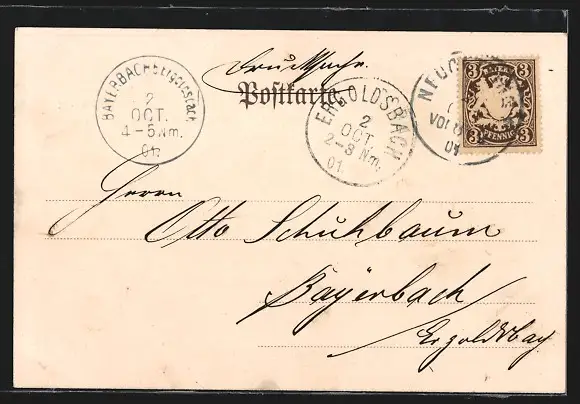 Drucksache.
Postkarte.
BAYERBACH B. Ergoldsbach
2
OCT.
4-5 Nm.
01.
ERGOLDSBACH
2
OCT.
2-3 Nm.
01.
NEU
VOR
01
3 3
PFENNIG
3 3
Herrn
Otto Schuhbaum
Bayerbach
Ergoldsbach